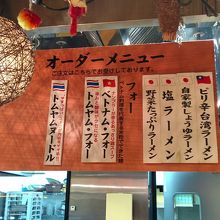 オーダーメニュー
ご注文はこちらでお受けしております。
ピリ辛台湾ラーメン
自家製しょうゆラーメン
塩ラーメン
野菜たっぷりラーメン
フォー
ベトナム・フォー
トムヤム・フォー
トムヤムヌードル